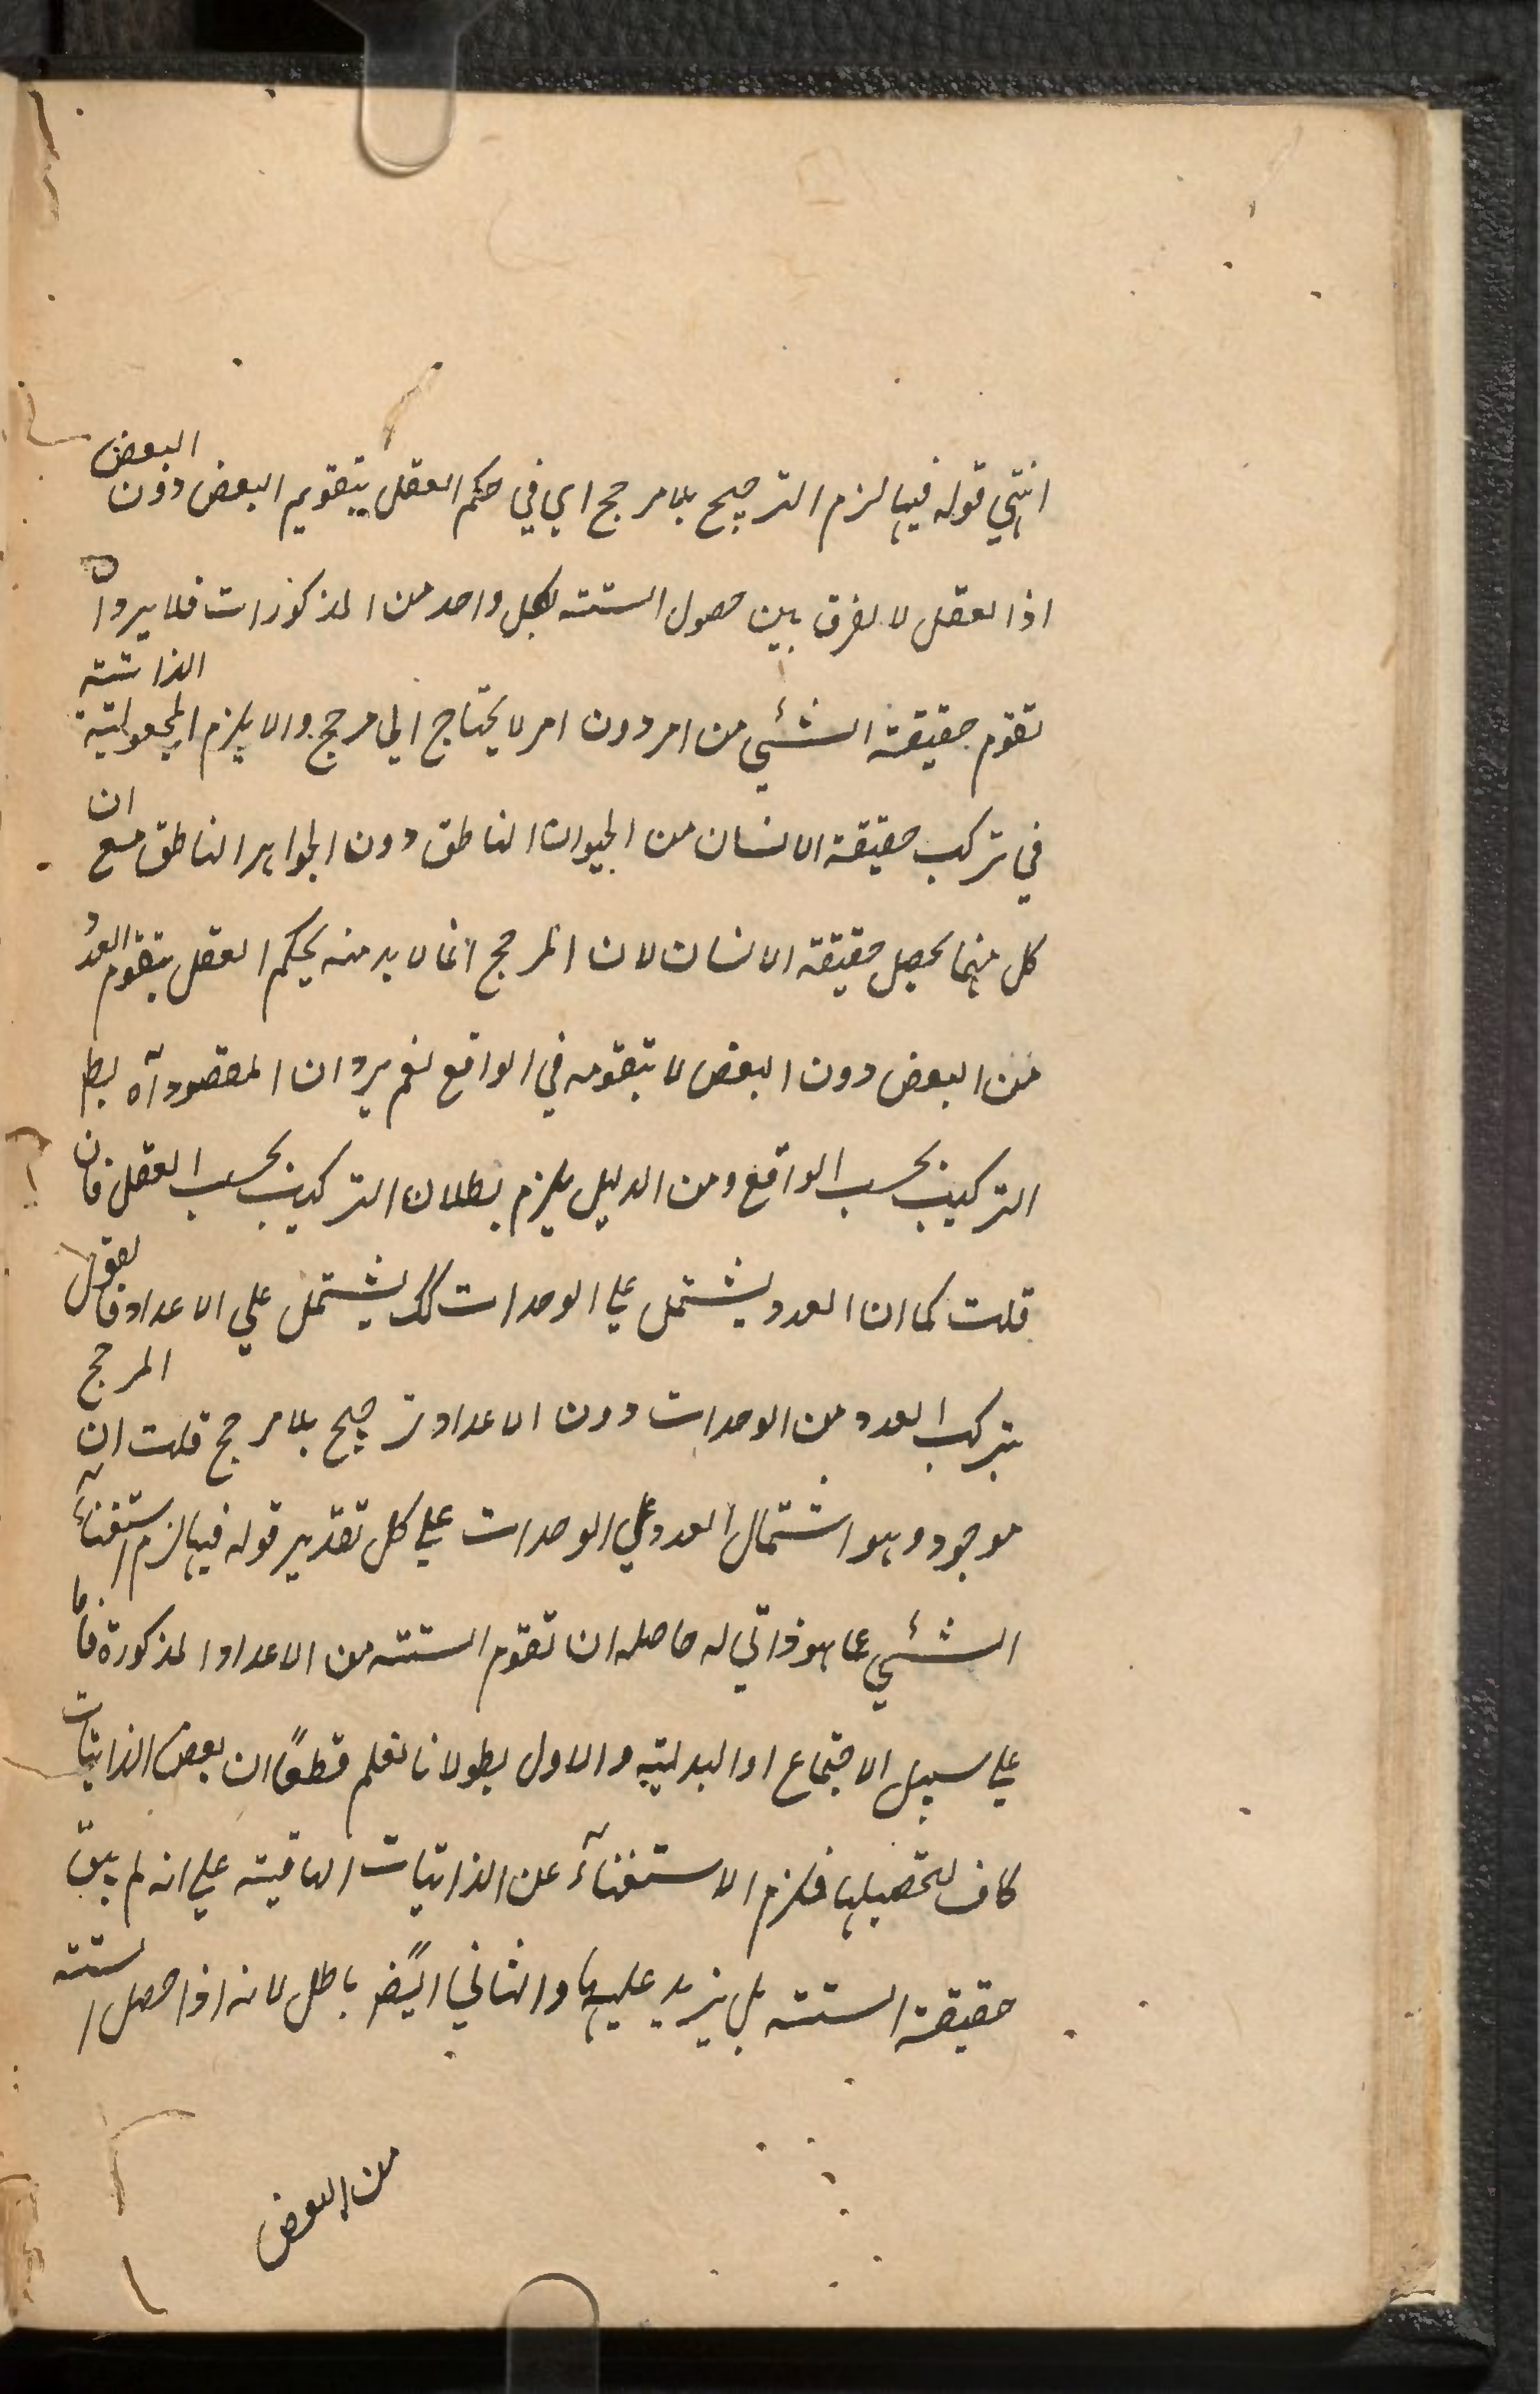 انتهي قوله فيها لزم الترجيح بلا مرجح اي في حكم العقل بتقويم البعض دون البعض
اذ العقل لا يفرق بين حصول الستته بكل واحد من المذكورات فلا يرد ان
تقوم حقيقة الشئي من امر دون امر لا يحتاج الي مرجح والا يلزم المجعولية الذاتية
في تركب حقيقة الانسان من الحيوان الناطق دون الجواهر الناطق مع ان
كل منهما يحصل حقيقة الانسان لان المرجح انما لا بد منه بحكم العقل بتقوم العدد
من البعض دون البعض لا بتقومه في الواقع نعم يرد ان المقصود آه بط
التركيب بحسب الواقع ومن الدليل يلزم بطلان التركيب بحسب العقل فان
قلت كما ان العدد يشتمل علي الوحدات كك يشتمل علي الاعداد فالقول
بتركب العدد من الوحدات دون الاعداد ترجيح بلا مرجح قلت ان المرجح
موجود وهو اشتمال العدد علي الوحدات علي كل تقدير قوله فيها لزم استغنآء
الشئي عما هو ذاتي له حاصله ان تقوم الستته من الاعداد المذكورة فاما
علي سبيل الاجتماع او البدلية والاول بط لانا نعلم قطعًا ان بعض الذاتيات
كاف لتحصيلها فلزم الاستغنآء عن الذاتيات الباقية علي انه لم يبق
حقيقة الستته بل يزيد عليها والثاني ايضًا باطل لانه اذا حصل الستته
من البعض